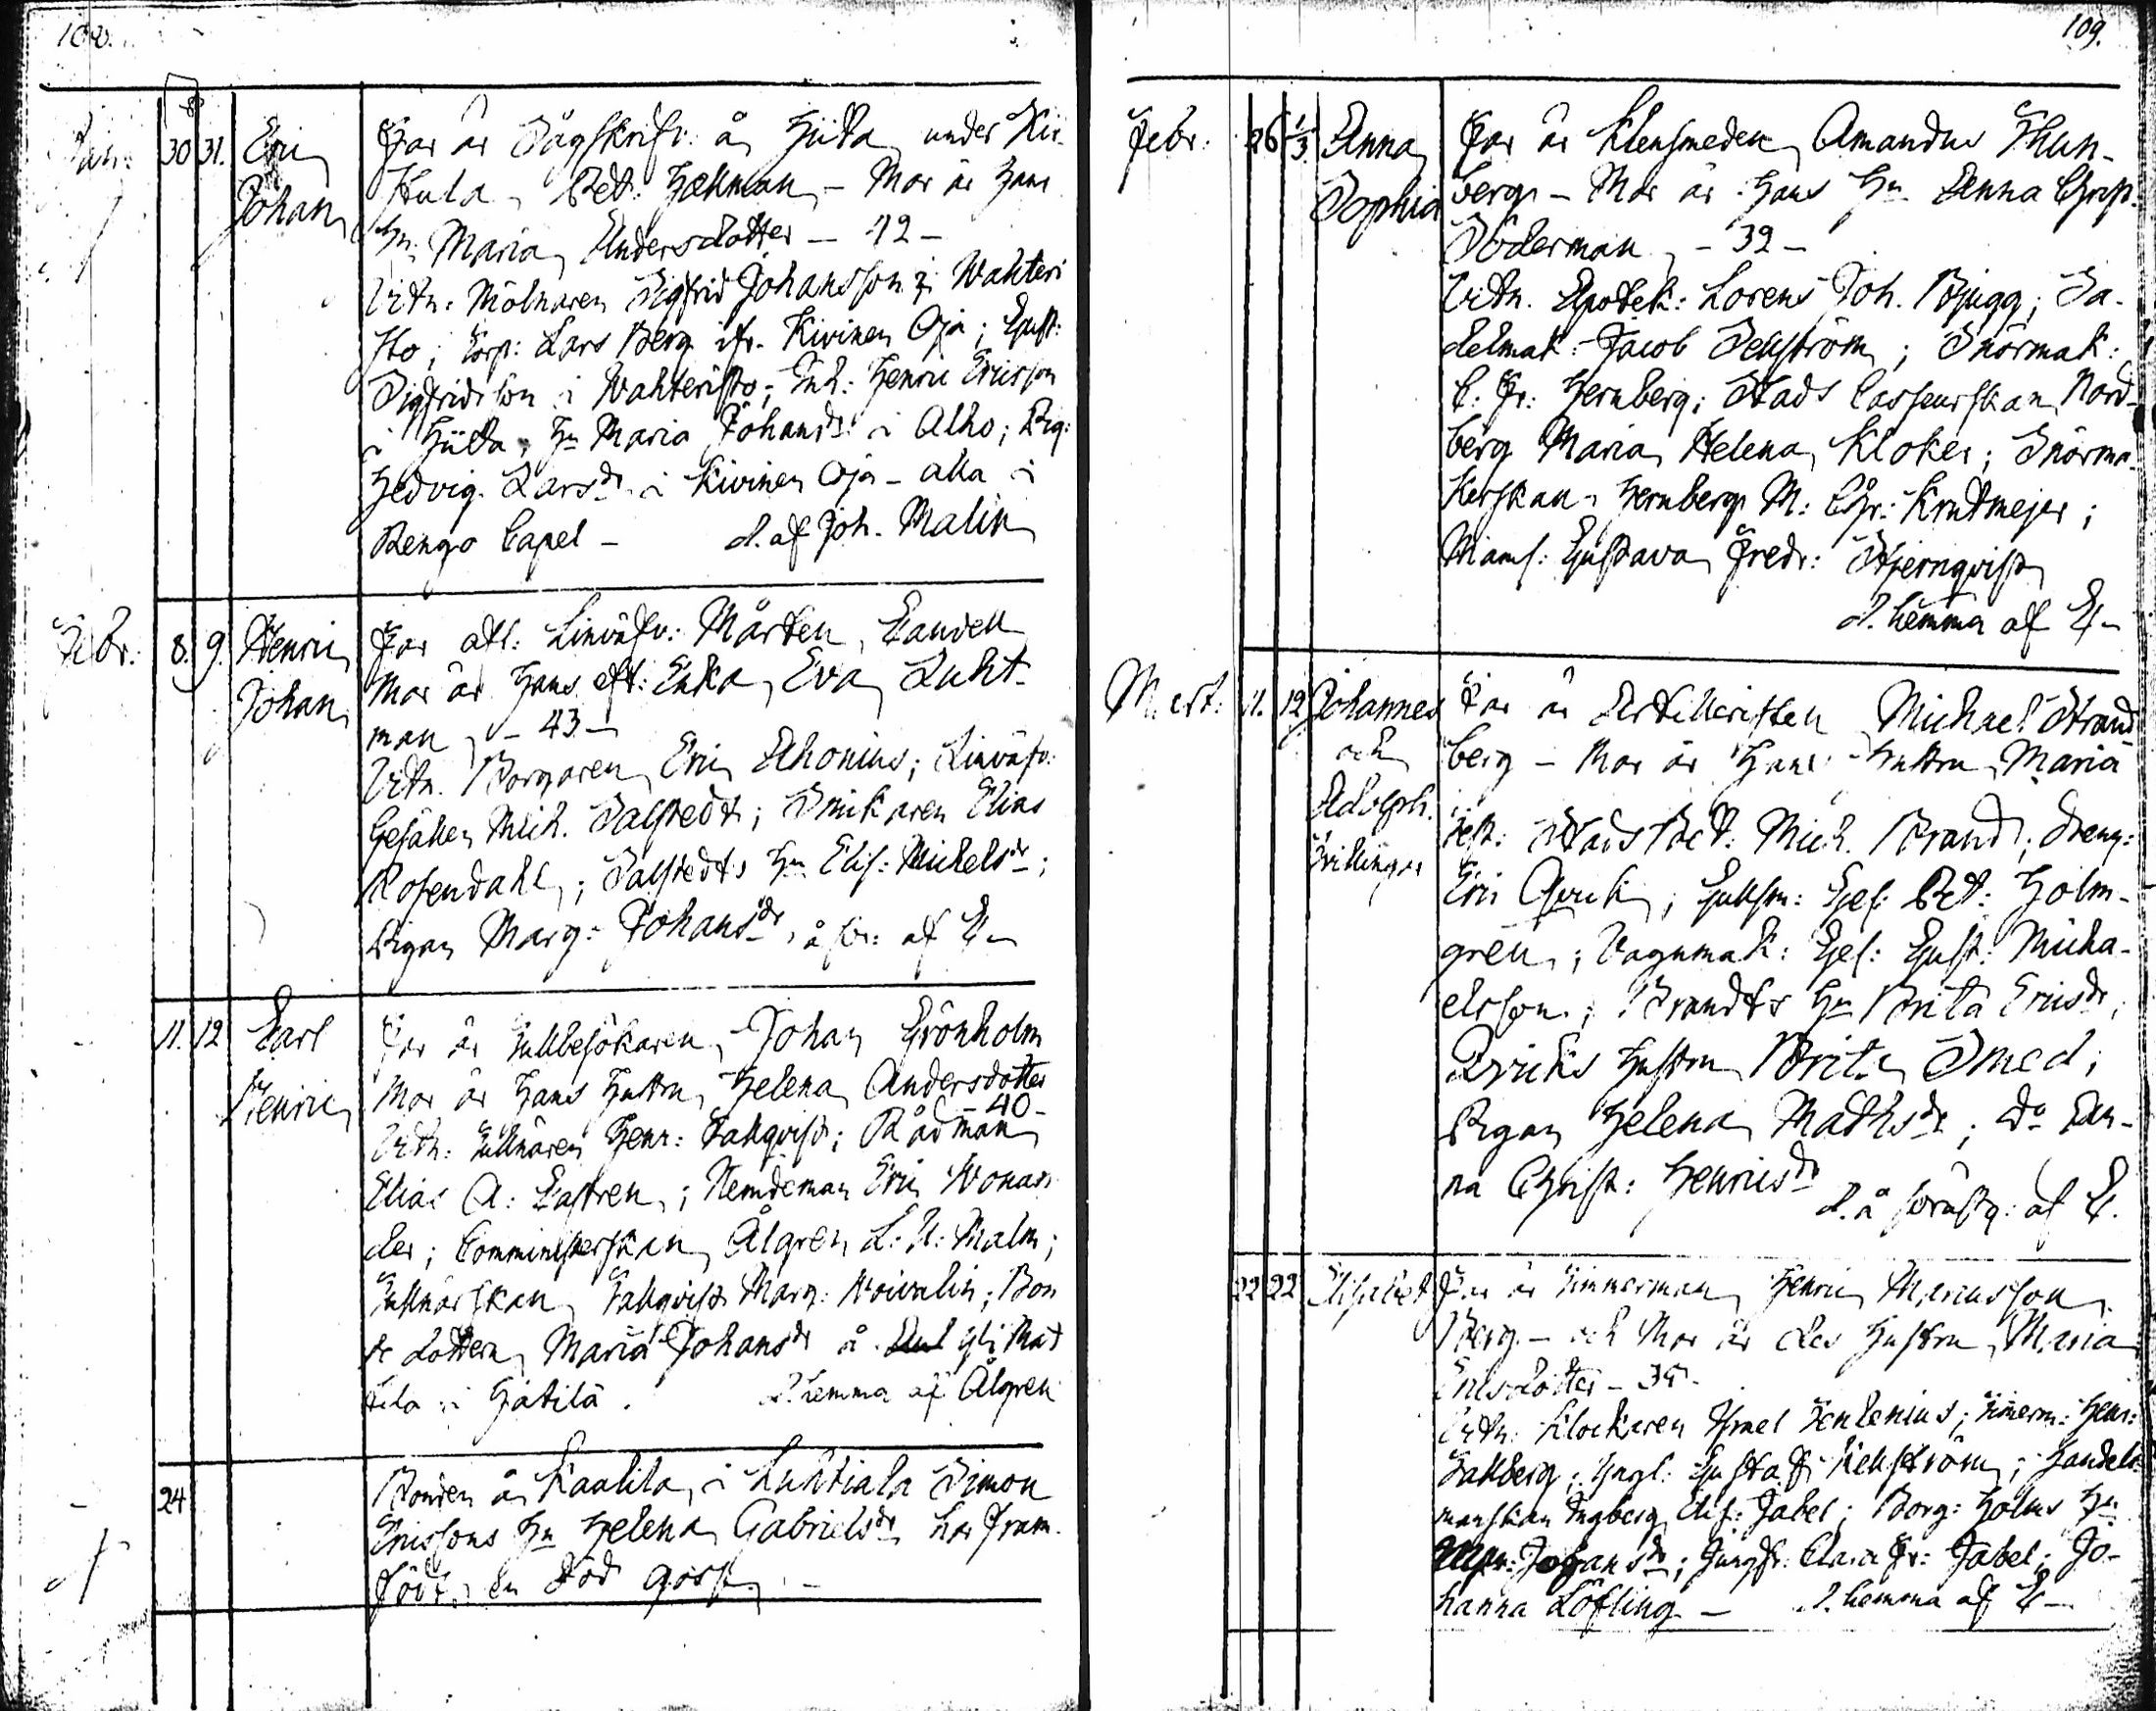 108.
Janr: 30 31. Eric Johan
Far är Sågskrifv: å Hjida under Kir-
stula Pet: Hællman – Mor är Hans
Hu: Maria Andersdotter – 42 –
Vitn: Mölnaren Sigfrid Johansson i Wahteri
sto; Corp: Lars Berg ifr. Kivinen Oja; Gust:
Sigfridsson i Wahteristo; Inh: Henric Ericsson
i Hjida; Hu Maria Johansdr i Alho; Pig:
Hedvig Larsdr i Kivinen Oja – alla i
Rengo Capel – d. af Joh. Malin
Febr: 8. 9. Henric Johan
Far afl: Linväfv: Mårten Landell
Mor är Hans eft: Enka Eva Luht-
man – 43 –
Vitn. Borgaren Eric Ahonius; Linväfv:
Gesällen Mich. Salstedt; Snikaren Elias
Rosendahl; Salstedts Hu Elis: Michelsdr;
Pigan Marg: Johansdr
11. 12 Carl Henric
Far är Tullbesökaren Johan Grönholm
Mor är Hans Hustru Helena Andersdotter
– 40 –
Vitn: Tullnären Henr: Falkqvist; Rådman
Elias A: Castren; Nemdeman Eric Wonan
der; Comministerskan Ålgren L: U: Malm;
Tullnärskan Falkqvist Marg: Woivalin; Bon
de dottern Maria Johansdr å Yli Mat
tila i Hätilä. d. hemma af Ålgren
24
Bonden å Kaalila i Luhtiala Simon
Ericssons Hu Helena Gabrielsdr har fram-
födt en död gosse –
109.
Febr: 26 1/3 Anna Sophia
Far är Klensmeden Amandus Thun-
berg – Mor är Hans Hu Anna Christ:
Söderman – 32 –
Vitn. Apotek: Lorens Joh. Bjugg; Sa-
delmak: Jacob Sellström; Snörmak:
C: Fr: Hernberg; Stads Casseurskan Nord-
berg Maria Helena Kloker; Snörma-
kerskan Hernberg M: Chr: Krutmejer;
Mams: Gustava Fredr: Stjernqvist
d. hemma af
Mart: 11. 12 Johannes och Adolph. Tvillingar
Far är Artilleristen Michael Strand
berg – Mor är Hans Hustru Maria
Test: Mich. Brand; Dreng:
Eric Qvick; Gullsm: Gesl: Pet: Holm-
gren; Vagnmak: Gesl: Gust: Micha-
elsson; Brandts Hu Brita Ericsdr;
Qvicks Hustru Brita Smed;
Pigan Helena Mathsdr; Do An-
na Christ: Henricsdr
22 22 Elisabet
Far är Timmerman Henric
Berg – och Mor är des Hustru Maria
Ericsdotter – 35 –
Vitn: Klockaren Ismel Tenlenius; Timerm: Henr:
Dahlberg; Yngl: Gustaf Kellström; Handels-
manskan Ingberg Elis: Jabel; Borg: Holms Hu
Johansdr; Jungfr: Clara Fr: Jabel; Jo-
hanna Löfling – d. hemma af